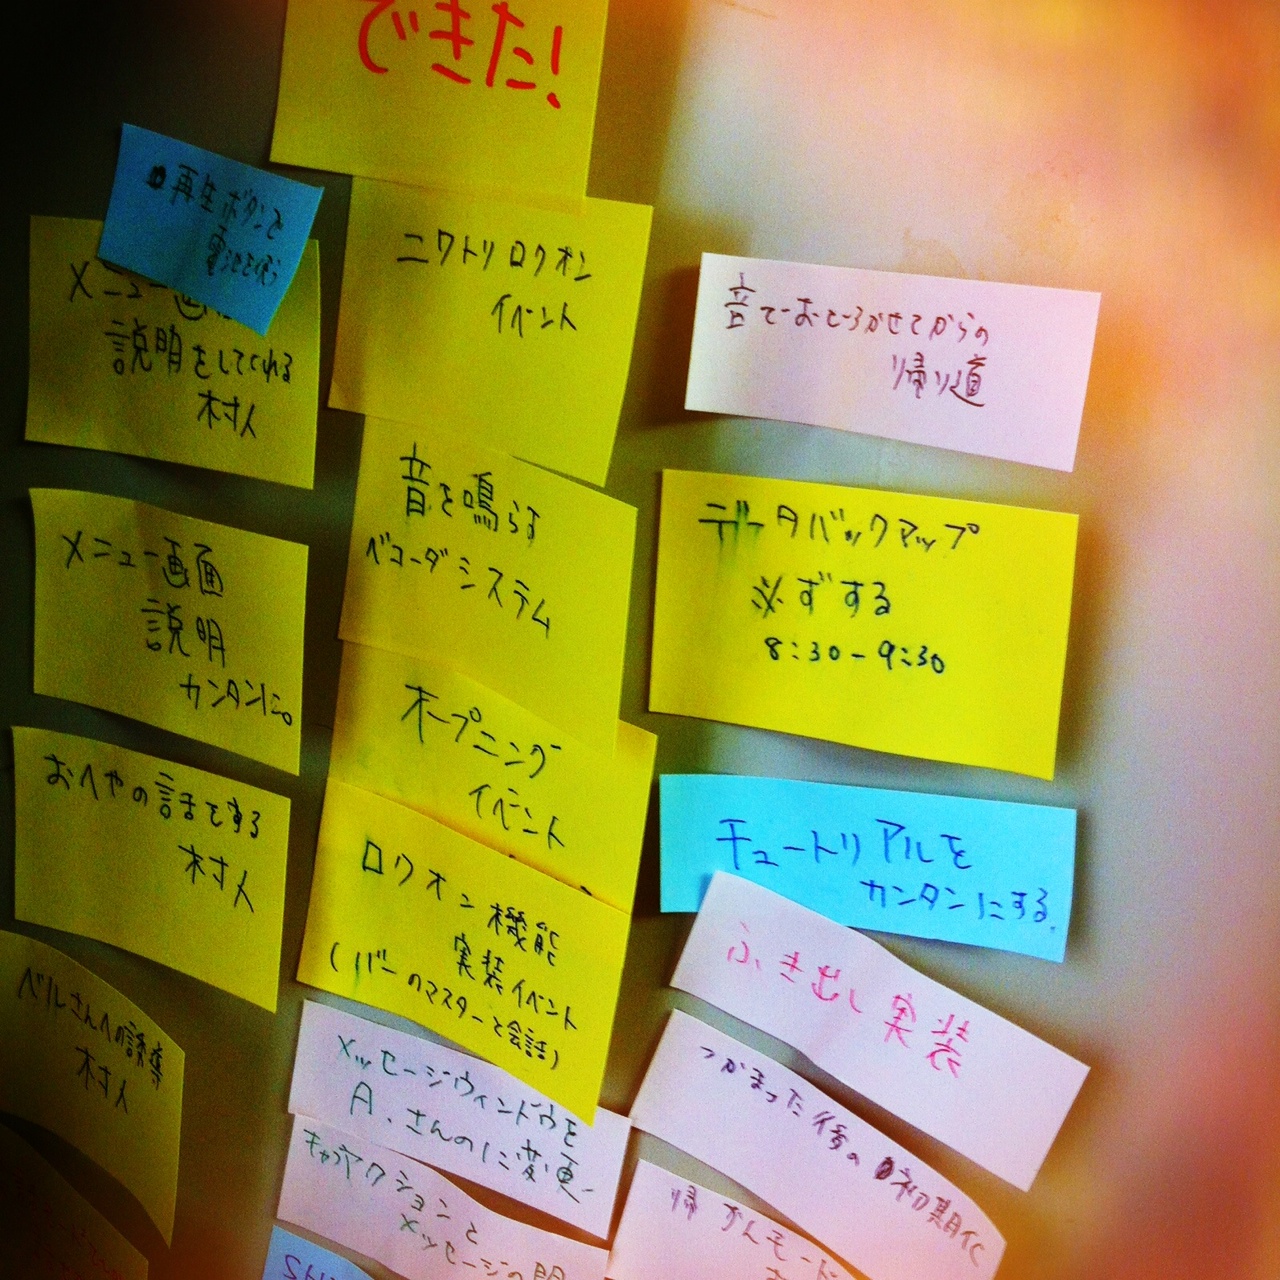 できた!
再生ボタンで
メニュー画
説明をしてくれる
村人
メニュー画面
説明
カンタンに。
おへやの話をする
村人
ベルさんへの誘導
村人
ニワトリロクオン
イベント
音を鳴らす
ベコーダシステム
オープニング
イベント
ロクオン機能
実装イベント
(バーのマスターと会話)
メッセージウィンドウを
A.さんのに変更
キャラアクションと
メッセージの間
音でおどろかせてからの
帰り道
データバックアップ
必ずする
8:30-9:30
チュートリアルを
カンタンにする.
ふき出し実装
つかまった後の初期化
帰かんモード